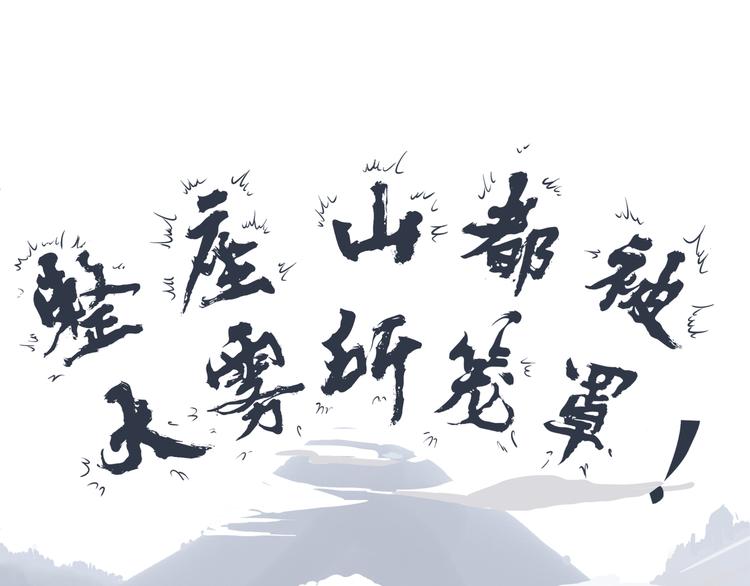 整座山都被
水雾所笼罩！